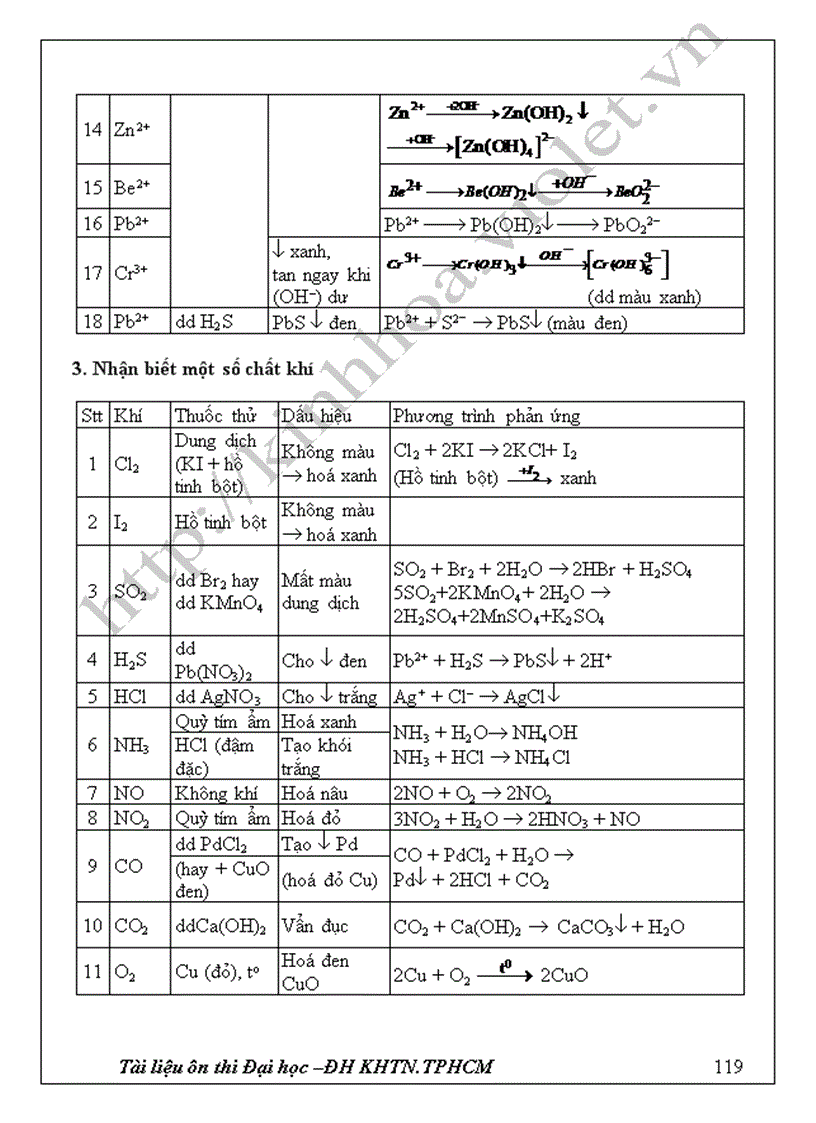 14 Zn²⁺ Zn²⁺ —+2OH⁻→ Zn(OH)₂↓
—+OH⁻→ [Zn(OH)₄]²⁻
15 Be²⁺ Be²⁺ ⟶ Be(OH)₂↓ —+OH⁻→ BeO₂²⁻
16 Pb²⁺ Pb²⁺ ⟶ Pb(OH)₂↓ ⟶ PbO₂²⁻
17 Cr³⁺ ↓ xanh, tan ngay khi (OH⁻) dư Cr³⁺ ⟶ Cr(OH)₃↓ —OH⁻→ [Cr(OH)₆³⁻]
(dd màu xanh)
18 Pb²⁺ dd H₂S PbS ↓ đen Pb²⁺ + S²⁻ → PbS↓ (màu đen)
3. Nhận biết một số chất khí
Stt Khí Thuốc thử Dấu hiệu Phương trình phản ứng
1 Cl₂ Dung dịch (KI + hồ tinh bột) Không màu → hoá xanh Cl₂ + 2KI → 2KCl+ I₂
(Hồ tinh bột) —+I₂→ xanh
2 I₂ Hồ tinh bột Không màu → hoá xanh
3 SO₂ dd Br₂ hay dd KMnO₄ Mất màu dung dịch SO₂ + Br₂ + 2H₂O → 2HBr + H₂SO₄
5SO₂+2KMnO₄+ 2H₂O →
2H₂SO₄+2MnSO₄+K₂SO₄
4 H₂S dd Pb(NO₃)₂ Cho ↓ đen Pb²⁺ + H₂S → PbS↓ + 2H⁺
5 HCl dd AgNO₃ Cho ↓ trắng Ag⁺ + Cl⁻ → AgCl↓
6 NH₃ Quỳ tím ẩm Hoá xanh NH₃ + H₂O→ NH₄OH
HCl (đậm đặc) Tạo khói trắng NH₃ + HCl → NH₄Cl
7 NO Không khí Hoá nâu 2NO + O₂ → 2NO₂
8 NO₂ Quỳ tím ẩm Hoá đỏ 3NO₂ + H₂O → 2HNO₃ + NO
9 CO dd PdCl₂ Tạo ↓ Pd CO + PdCl₂ + H₂O →
(hay + CuO đen) (hoá đỏ Cu) Pd↓ + 2HCl + CO₂
10 CO₂ ddCa(OH)₂ Vẩn đục CO₂ + Ca(OH)₂ → CaCO₃↓ + H₂O
11 O₂ Cu (đỏ), tº Hoá đen CuO 2Cu + O₂ —t⁰→ 2CuO
Tài liệu ôn thi Đại học –ĐH KHTN.TPHCM 119
http://kinhhoa.violet.vn